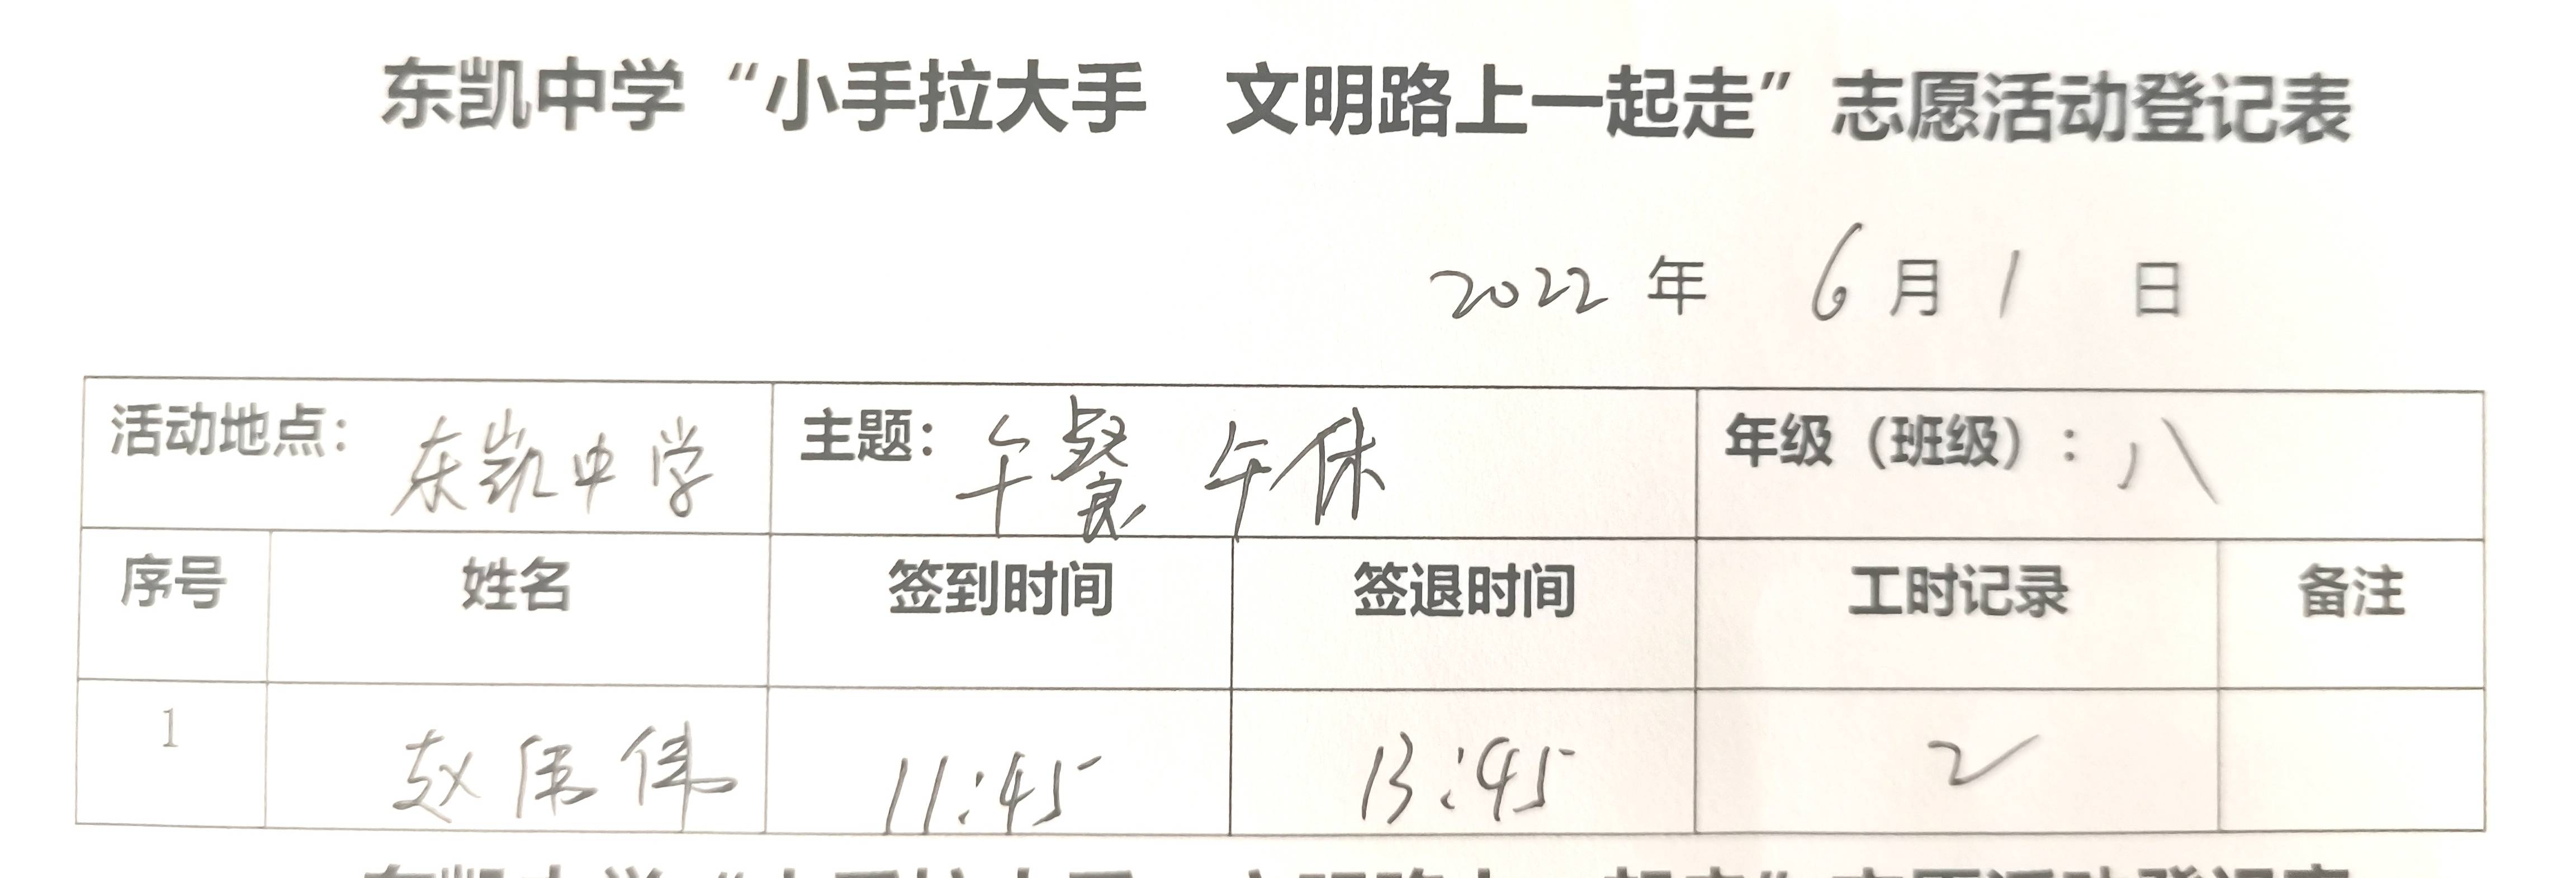 东凯中学“小手拉大手 文明路上一起走”志愿活动登记表
2022 年 6 月 1 日
活动地点： 东凯中学 主题： 午餐 午休 年级（班级）： 八
序号 姓名 签到时间 签退时间 工时记录 备注
1 赵 伟 11:45 13:45 2